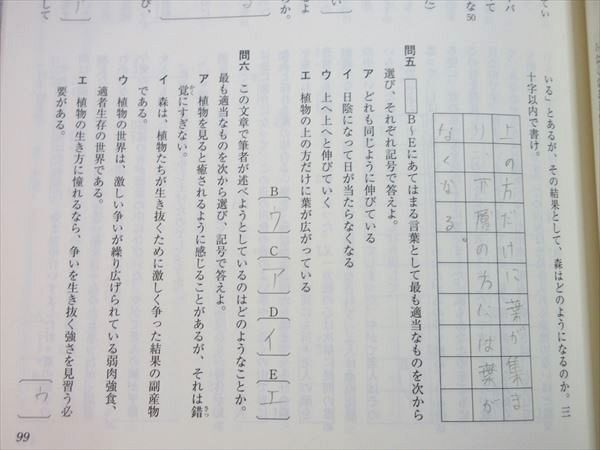 いる」とあるが、その結果として、森はどのようになるのか。三
十字以内で書け。
上の方だけに葉が集ま
り、下層の方には葉が
なくなる。
問五 B～Eにあてはまる言葉として最も適当なものを次から
選び、それぞれ記号で答えよ。
ア どれも同じように伸びている
イ 日陰になって日が当たらなくなる
ウ 上へ上へと伸びていく
エ 植物の上の方だけに葉が広がっている
B〔ウ〕C〔ア〕D〔イ〕E〔エ〕
問六 この文章で筆者が述べようとしているのはどのようなことか。
最も適当なものを次から選び、記号で答えよ。
ア 植物を見ると癒されるように感じることがあるが、それは錯
覚にすぎない。
イ 森は、植物たちが生き抜くために激しく争った結果の副産物
である。
ウ 植物の世界は、激しい争いが繰り広げられている弱肉強食、
適者生存の世界である。
エ 植物の生き方に憧れるなら、争いを生き抜く強さを見習う必
要がある。
〔ウ〕
99